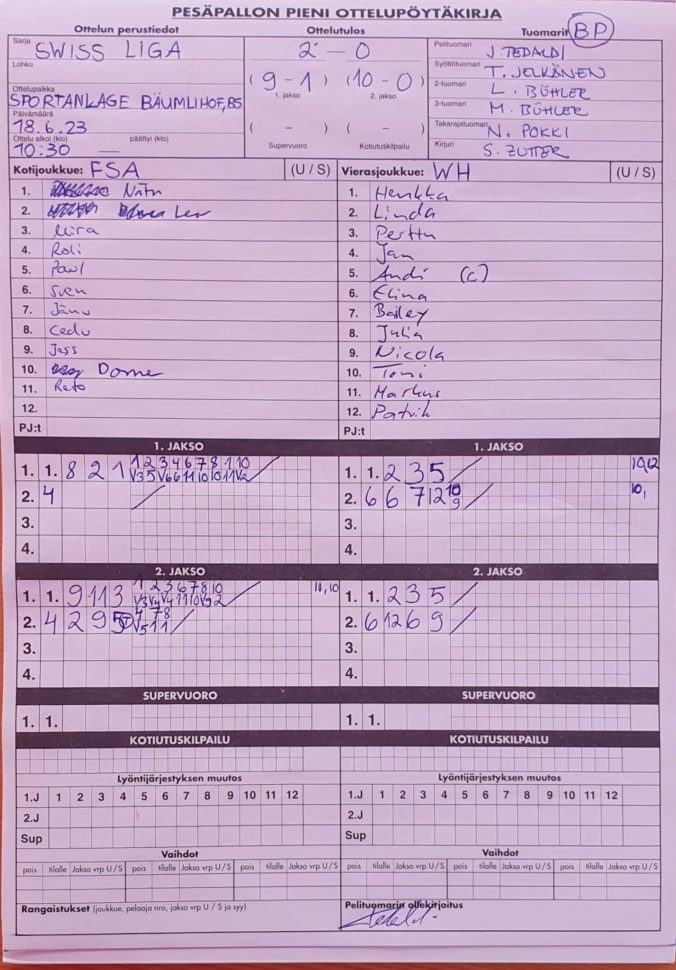 PESÄPALLON PIENI OTTELUPÖYTÄKIRJA
Ottelun perustiedot Ottelutulos Tuomarit BP
Sarja SWISS LIGA 2 – 0 Pelituomari J. TEDALDI
Lohko Syöttötuomari T. JELKÄNEN
Ottelupaikka (9-1) (10-0) 2-tuomari L. BÜHLER
SPORTANLAGE BÄUMLIHOF, BS 1. jakso 2. jakso 3-tuomari M. BÜHLER
Päivämäärä 18.6.23 ( – ) ( – ) Takarajatuomari N. POKKI
Ottelu alkoi (klo) päättyi (klo) Supervuoro Kotiutuskilpailu Kirjuri S. ZUTTER
10:30 —
Kotijoukkue: FSA (U / S) Vierasjoukkue: WH (U / S)
1. Natu 1. Henkka
2. 2. Linda
3. Mira 3. Perttu
4. Roli 4. Jan
5. Powl 5. Andi (C)
6. Sven 6. Elina
7. Jänu 7. Bailey
8. Cedu 8. Julia
9. Jess 9. Nicola
10. Dome 10. Toni
11. Reto 11. Markus
12. 12. Patrik
PJ:t PJ:t
1. JAKSO 1. JAKSO
1. 1. 8 2 1 1. 1. 2 3 5 10,12
2. 4 2. 6 6 7 12 10,
3. 3.
4. 4.
2. JAKSO 2. JAKSO
1. 1. 9 11 3 11,10 1. 1. 2 3 5
2. 4 2 9 5 2. 6 12 6 9
3. 3.
4. 4.
SUPERVUORO SUPERVUORO
1. 1. 1. 1.
KOTIUTUSKILPAILU KOTIUTUSKILPAILU
Lyöntijärjestyksen muutos Lyöntijärjestyksen muutos
1.J 1 2 3 4 5 6 7 8 9 10 11 12 1.J 1 2 3 4 5 6 7 8 9 10 11 12
2.J 2.J
Sup Sup
Vaihdot Vaihdot
pois tilalle Jakso vrp U / S pois tilalle Jakso vrp U / S pois tilalle Jakso vrp U / S pois tilalle Jakso vrp U / S pois tilalle Jakso vrp U / S pois tilalle Jakso vrp U / S
Rangaistukset (joukkue, pelaaja nro, jakso vrp U / S ja syy) Pelituomarin allekirjoitus